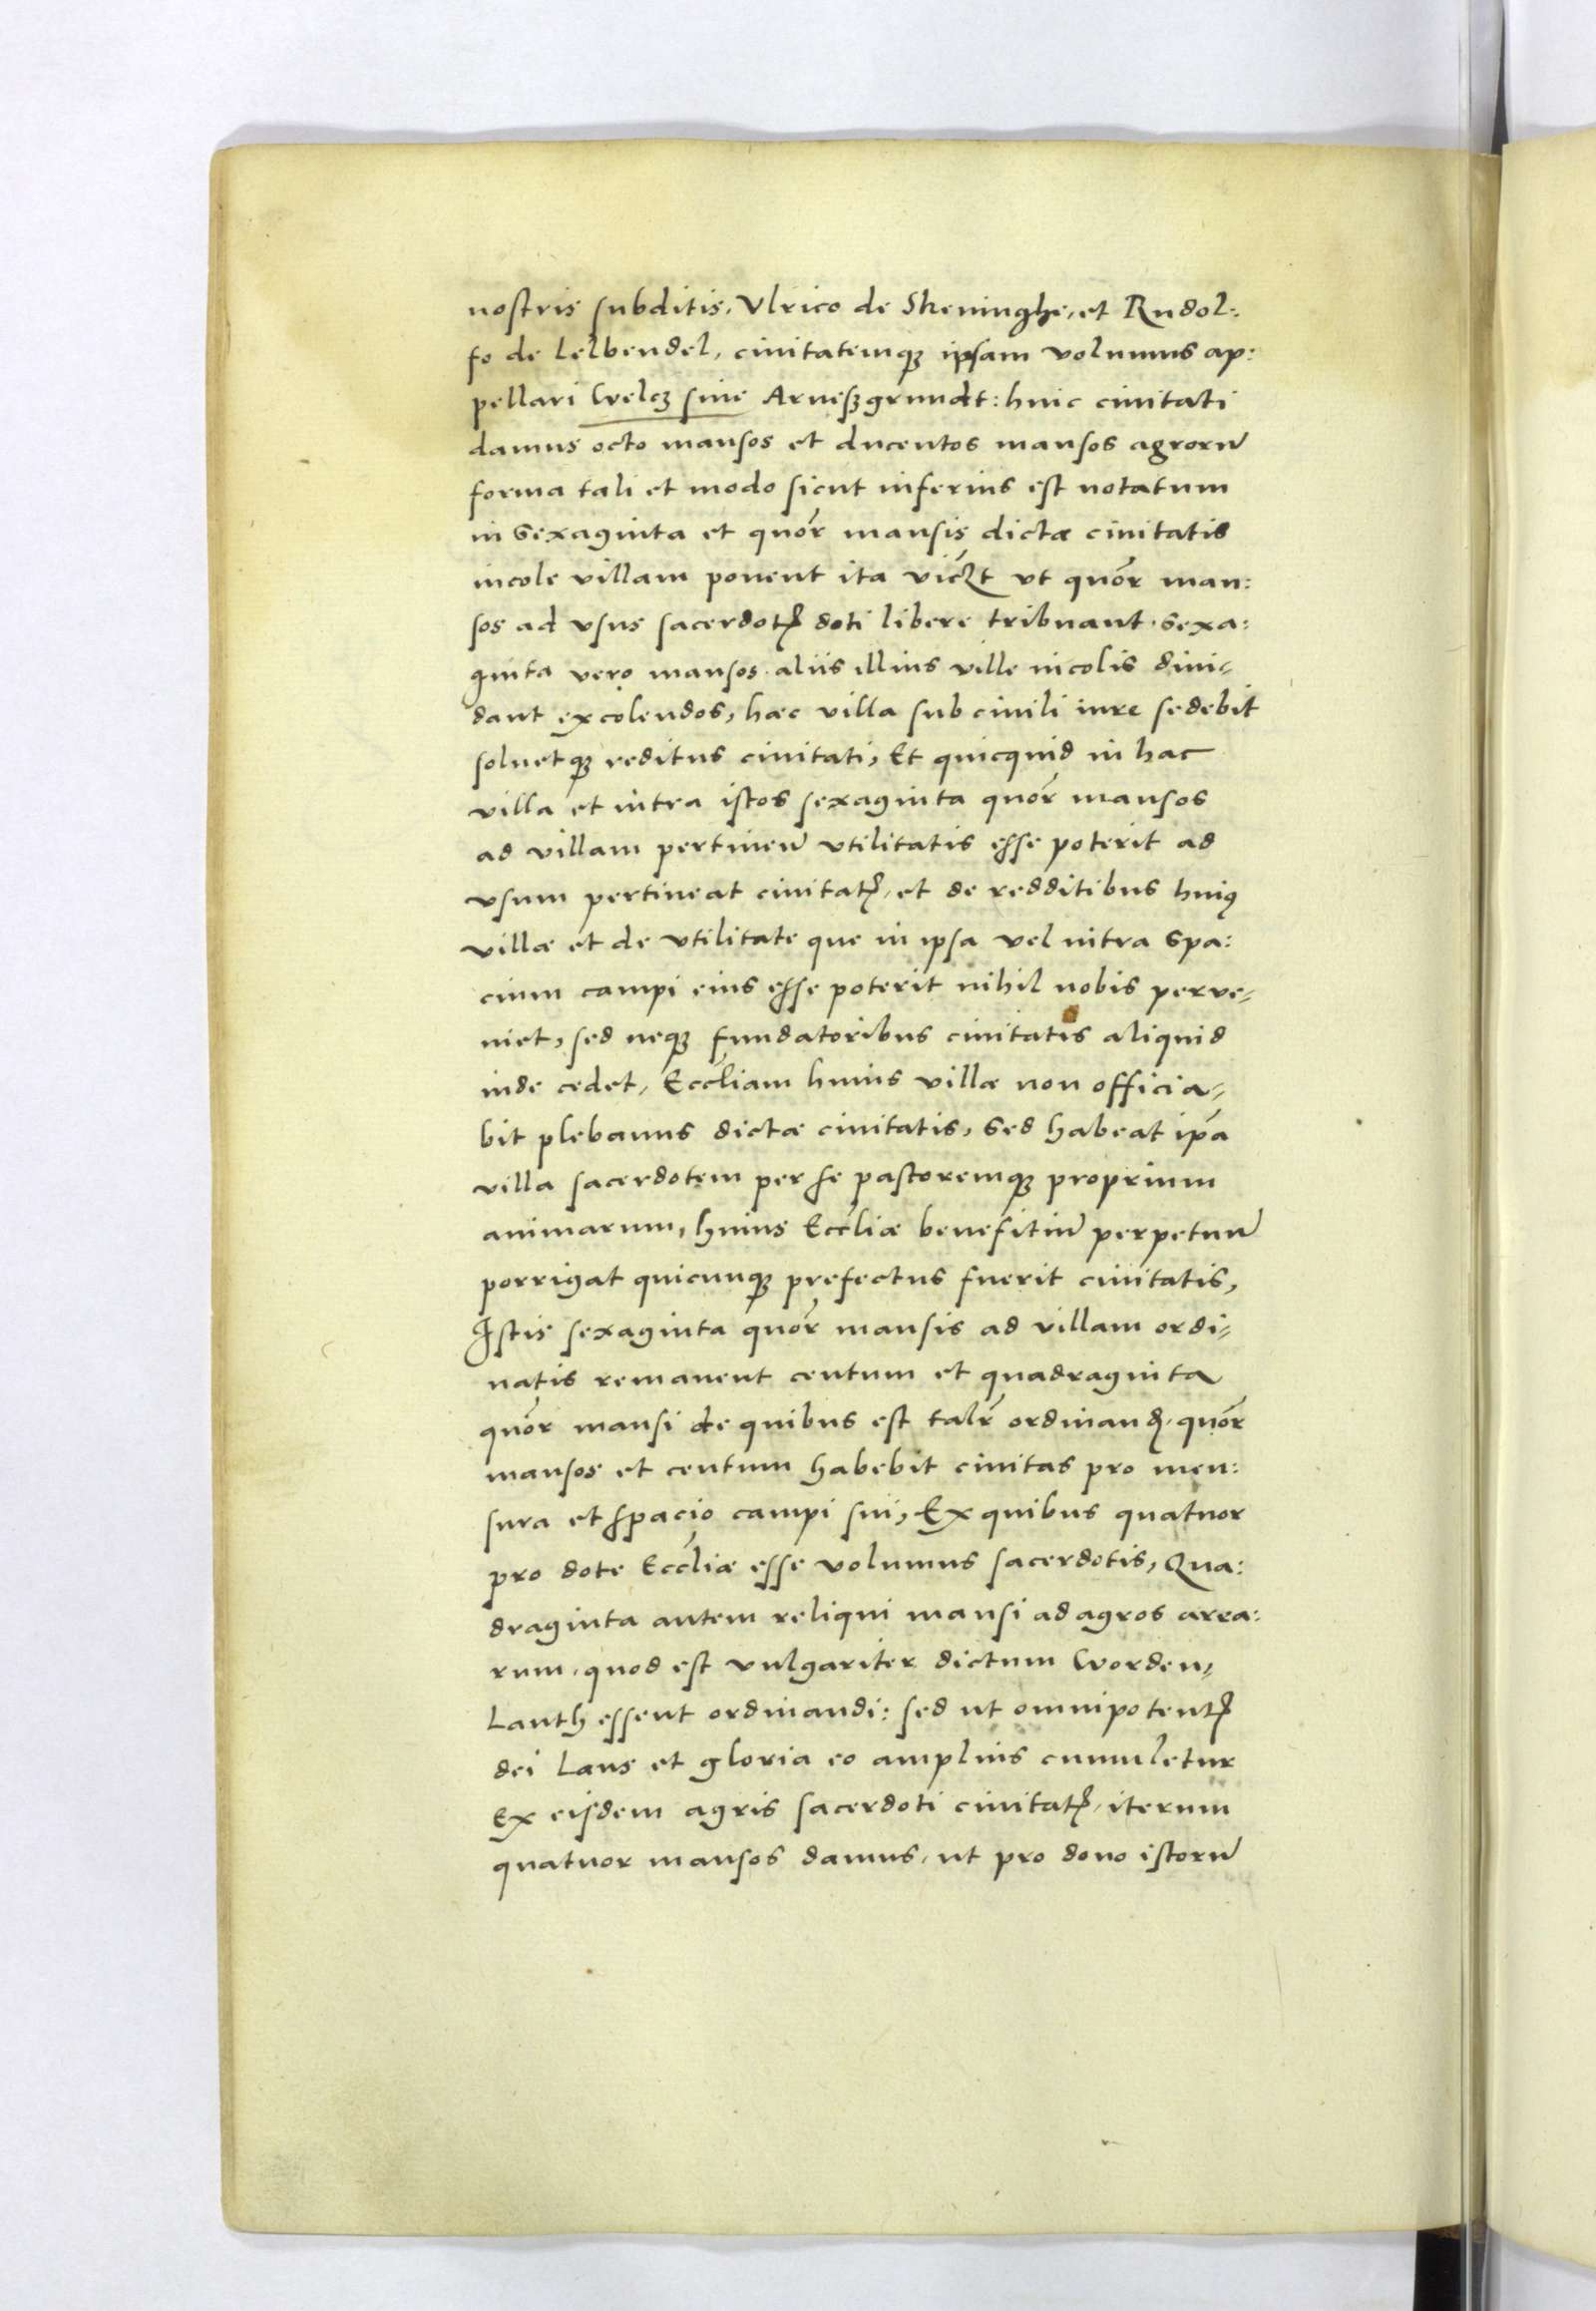 nostris subditis, Vlrico de Skeninghe, et Rudol:
fo de Lelbendel, ciuitatemqꝫ ipsam volumus ap:
pellari Welcz siue Arneßgrundt: huic ciuitati
damus octo mansos et ducentos mansos agrorū
forma tali et modo sicut inferius est notatum
in sexaginta et quōr mansis dictæ ciuitatis
incole villam ponent ita viczt vt quōr man:
sos ad vsus sacerdotꝭ doti libere tribuant. sexa:
ginta vero mansos aliis illius ville incolis diui-
dant excolendos, hæc villa sub ciuili iure sedebit
soluetqꝫ reditus ciuitati, Et quicquid in hac
villa et intra istos sexaginta quōr mansos
ad villam pertineñ vtilitatis esse poterit ad
vsum pertineat ciuitatꝭ, et de redditibus huiꝰ
villæ et de vtilitate que in ipsa vel intra spa:
cium campi eius esse poterit nihil nobis perve-
niet, sed neqꝫ fundatoribus ciuitatis aliquid
inde cedet, Eccl̄iam huius villæ non officia-
bit plebanus dictæ ciuitatis, sed habeat ip̄a
villa sacerdotem per se pastoremqꝫ proprium
animarum, huius Eccl̄iæ benefitiū perpetuū
porrigat quicunqꝫ prefectus fuerit ciuitatis,
Istis sexaginta quōr mansis ad villam ordi-
natis remanent centum et quadraginta
quōr mansi de quibus est talr̄ ordinanꝺ, quōr
mansos et centum habebit ciuitas pro men:
sura et spacio campi sui, Ex quibus quatuor
pro dote Eccl̄iæ esse volumus sacerdotis, Qua:
draginta autem reliqui mansi ad agros area:
rum, quod est vulgariter dictum Worden-
Lanth essent ordinandi: sed ut omnipotentꝭ
dei Laus et gloria eo amplius cumuletur
Ex eisdem agris sacerdoti ciuitatꝭ, iterum
quatuor mansos damus, ut pro dono istorū